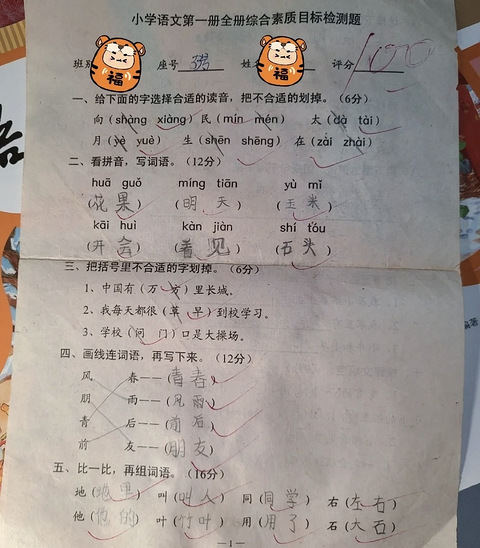 小学语文第一册全册综合素质目标检测题
班 座号 3号 姓 评分 100
福 福
一、给下面的字选择合适的读音，把不合适的划掉。（6分）
向（shàng xiàng）民（mín mén） 太（dà tài）
月（yè yuè） 生（shēn shēng）在（zài zhài）
二、看拼音，写词语。（12分）
huā guǒ míng tiān yù mǐ
（花果） （明天） （玉米）
kāi huì kàn jiàn shí tóu
（开会） （看见） （石头）
三、把括号里不合适的字划掉。（6分）
1、中国有（万 方）里长城。
2、我每天都很（草 早）到校学习。
3、学校（问 门）口是大操场。
四、画线连词语，再写下来。（12分）
风 春——（青春）
朋 雨——（风雨）
青 后——（前后）
前 友——（朋友）
五、比一比，再组词语。（16分）
地（地里） 叫（叫人） 同（同学） 右（左右）
他（他的） 叶（竹叶） 用（用了） 石（大石）
—1—